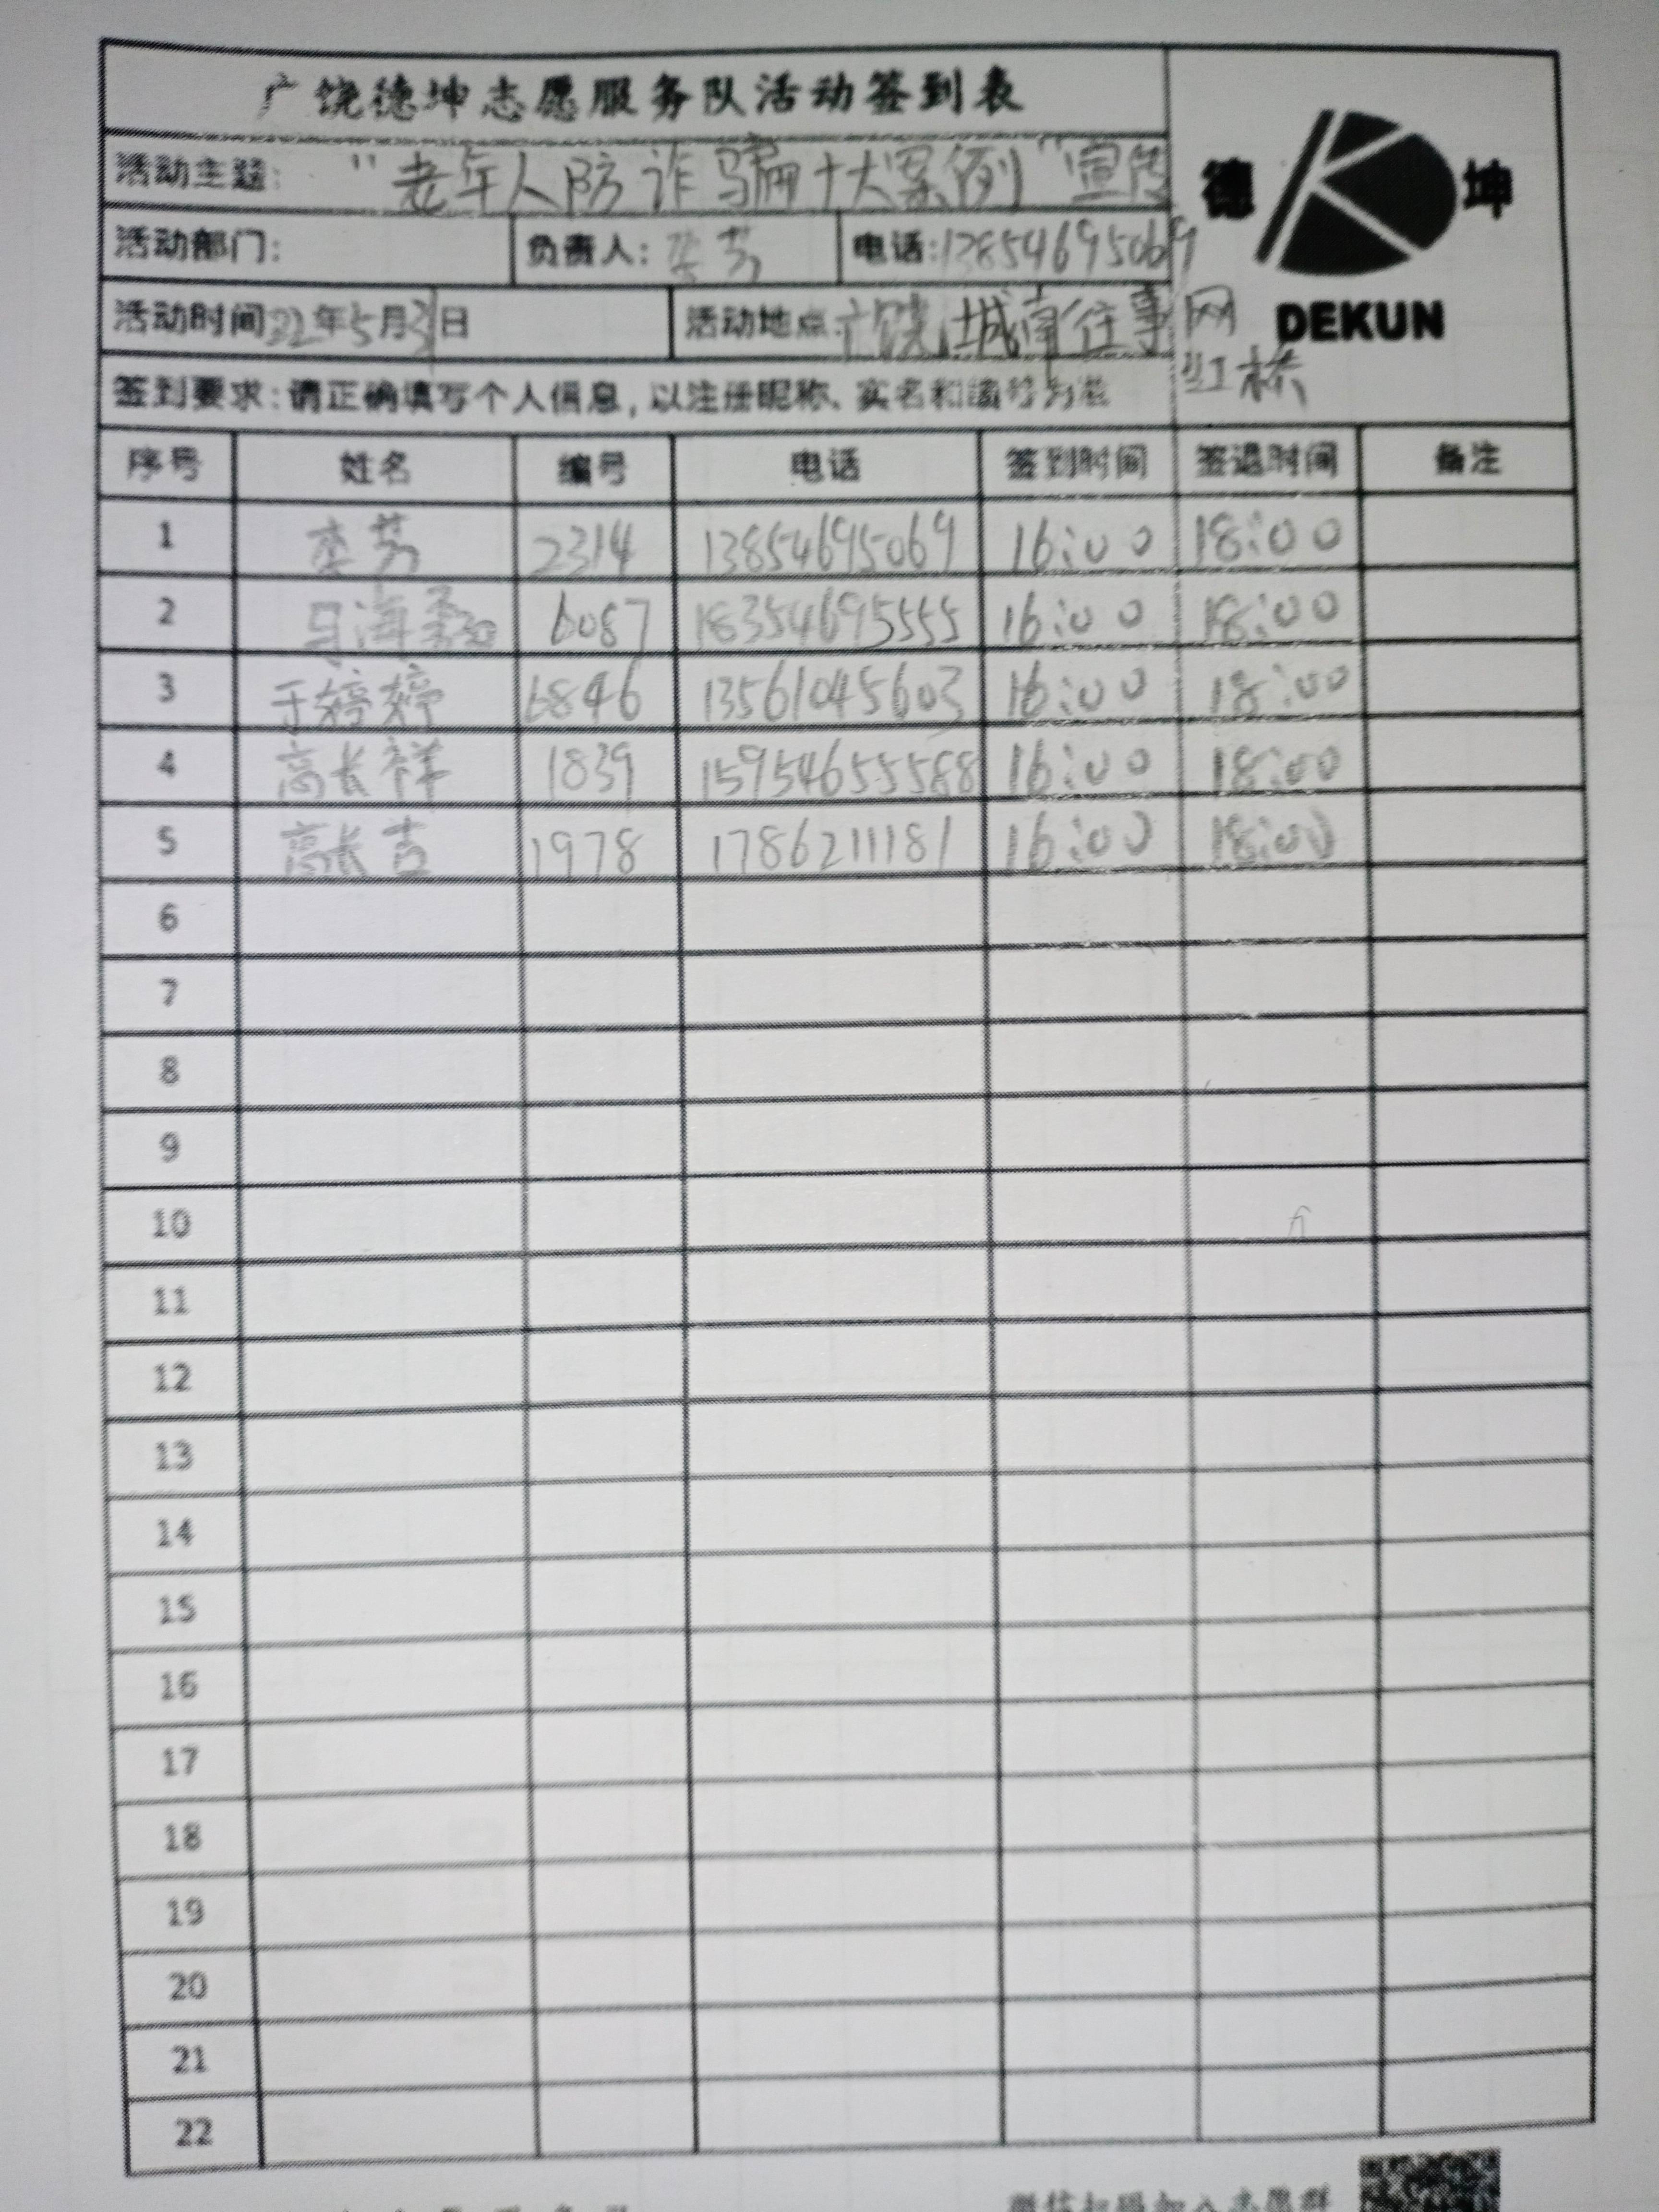 广饶德坤志愿服务队活动签到表
活动主题: "老年人防诈骗十大案例"宣传
德 坤
DEKUN
活动部门: 负责人: 李芳 电话:13854695069
活动时间22年5月31日 活动地点:广饶城南往事网红桥
签到要求:请正确填写个人信息,以注册昵称、实名和编号为准
序号 姓名 编号 电话 签到时间 签退时间 备注
1 李芳 2314 13854695069 16:00 18:00
2 马海 6087 18354695555 16:00 18:00
3 于婷婷 6846 13561045603 16:00 18:00
4 高长祥 1839 15954655588 16:00 18:00
5 高长吉 1978 1786211181 16:00 18:00
6
7
8
9
10
11
12
13
14
15
16
17
18
19
20
21
22
微信扫码加入志愿群